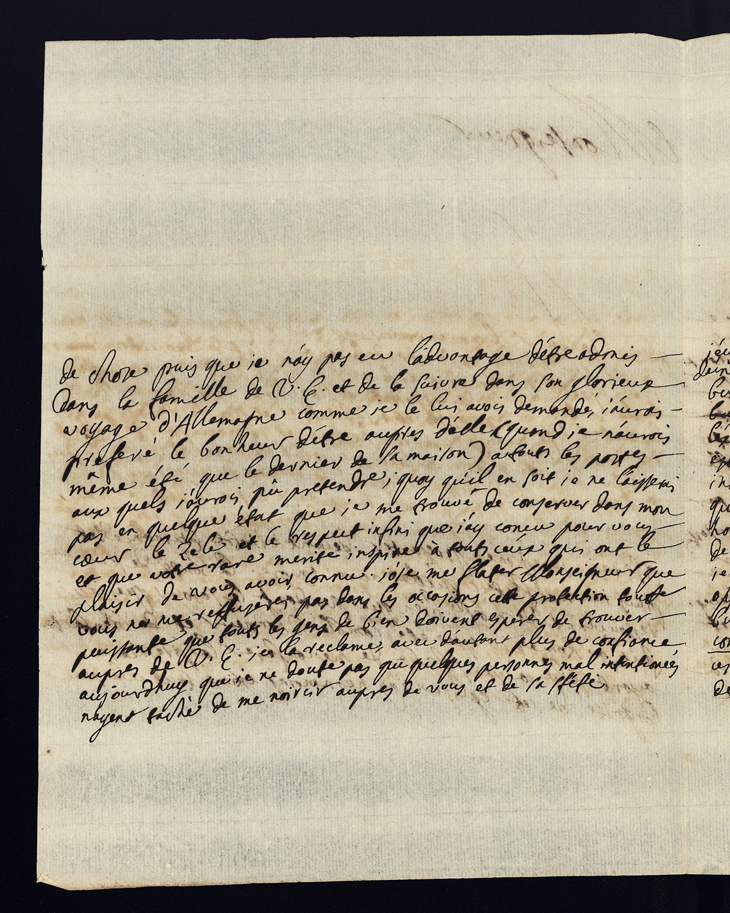 de chose puis que je n'ay pas eu l'advantage d'être admis —
dans la famille de V. E. et de la suivre dans son glorieux
voyage d'Allemagne comme je le lui avois demandés, j'aurois —
preferé le bonheur d'être aupres d'elle (quand je n'aurois
même été que le dernier de sa maison) à touts les postes —
aux quels j'aurois pû pretendre; quoy qu'il en soit je ne laisserai
pas en quelque état que je me trouve de conserver dans mon
cœur le zele et le respect infini que j'ay conçu pour vous —
et que votre rare merite inspire à touts ceux qui ont le
plaisir de vous avoir connu. j'ose me flater Monseigneur que
vous ne me refuserés pas dans les occasions cette protection toute
puissante que touts les gens de bien doivent esperer de trouver —
aupres de V. E. je la reclame avec d'autant plus de confiance
aujourdhuy que je ne doute pas que quelques personnes mal intentionées
n'ayent taché de me noircir aupres de vous et de sa Stété